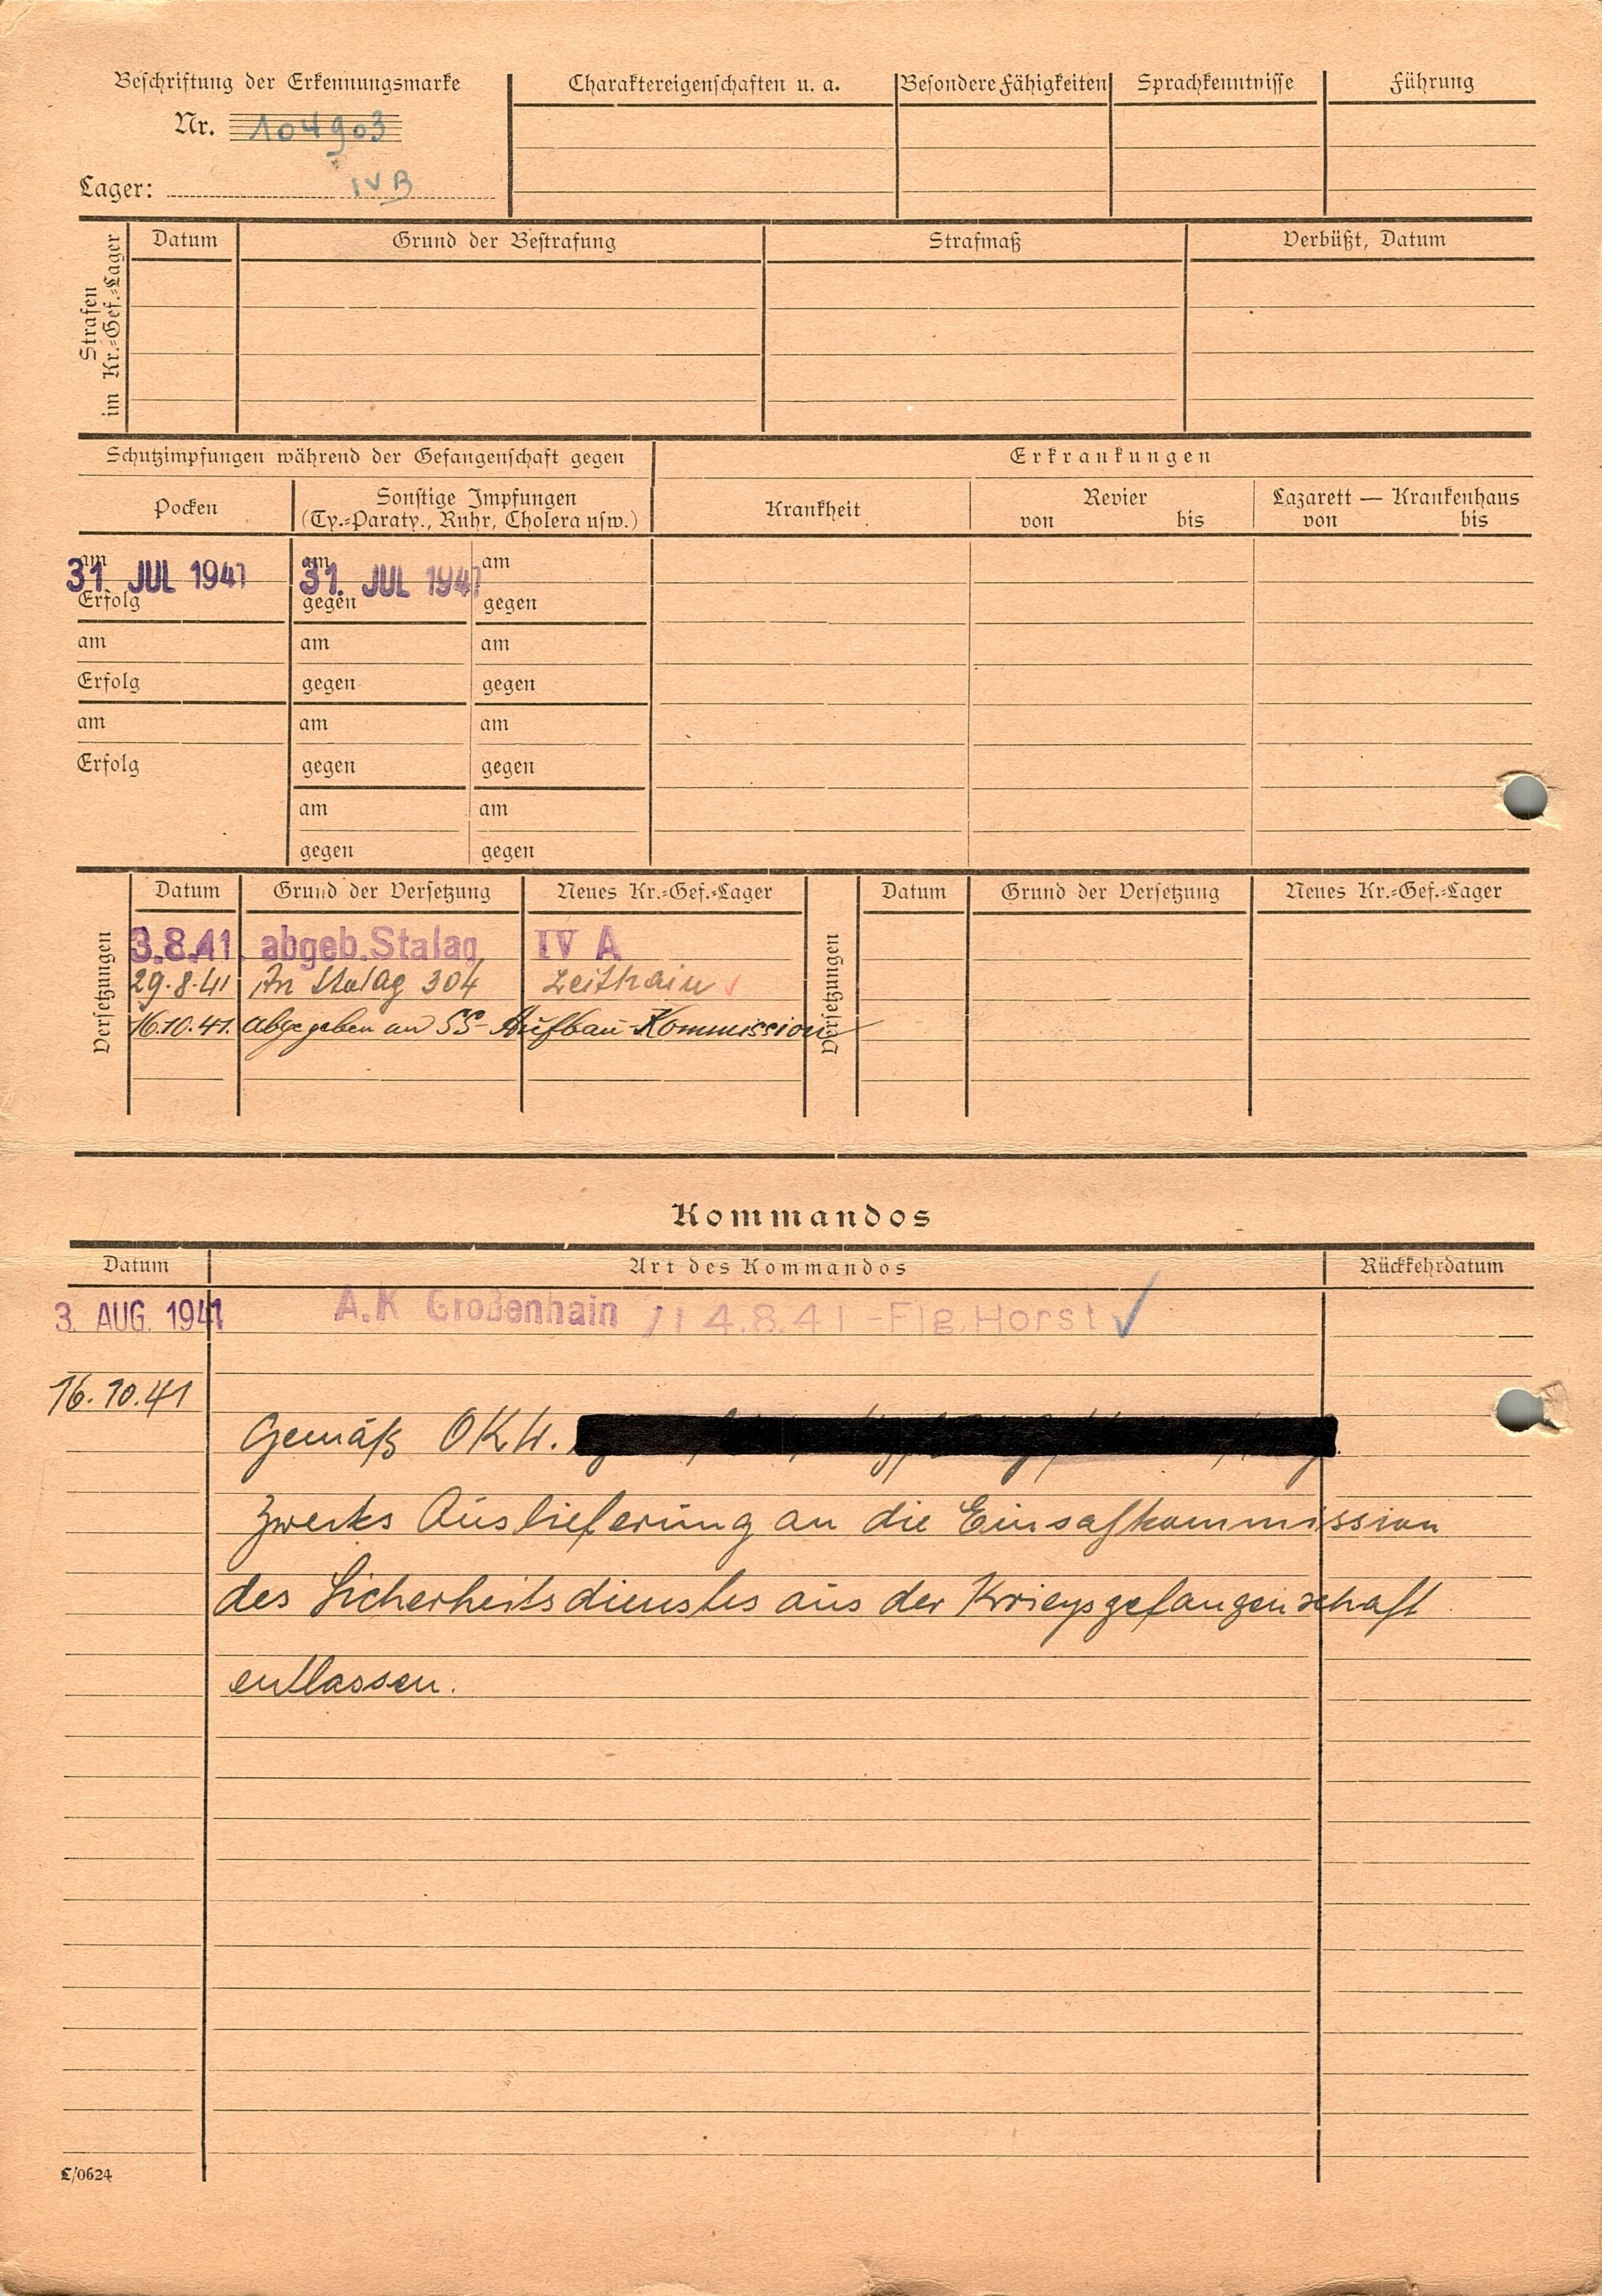 Beschriftung der Erkennungsmarke
Nr. 104903
Lager: IV B
Charaktereigenschaften u. a.
Besondere Fähigkeiten
Sprachkenntnisse
Führung
Strafen
im Kr.=Gef.=Lager
Datum
Grund der Bestrafung
Strafmaß
Verbüßt, Datum
Schutzimpfungen während der Gefangenschaft gegen
Erkrankungen
Pocken
Sonstige Impfungen
(Ty.=Paraty., Ruhr, Cholera usw.)
Krankheit
Revier
von bis
Lazarett — Krankenhaus
von bis
am am am
31 JUL 1941 31. JUL 1941
Erfolg gegen gegen
am am am
Erfolg gegen gegen
am am am
Erfolg gegen gegen
am am
gegen gegen
Versetzungen
Datum Grund der Versetzung Neues Kr.=Gef.=Lager
3.8.41. abgeb. Stalag IV A
29.8.41 An Stalag 304 Zeithain
16.10.41. abgegeben an SS-Aufbau-Kommission
Versetzungen
Datum Grund der Versetzung Neues Kr.=Gef.=Lager
Kommandos
Datum Art des Kommandos Rückkehrdatum
3. AUG. 1941 A.K Großenhain 4.8.41 - Flg. Horst
16.10.41
Gemäß OKW.
zwecks Auslieferung an die Einsatzkommission
des Sicherheitsdienstes aus der Kriegsgefangenschaft
entlassen.
C/0624